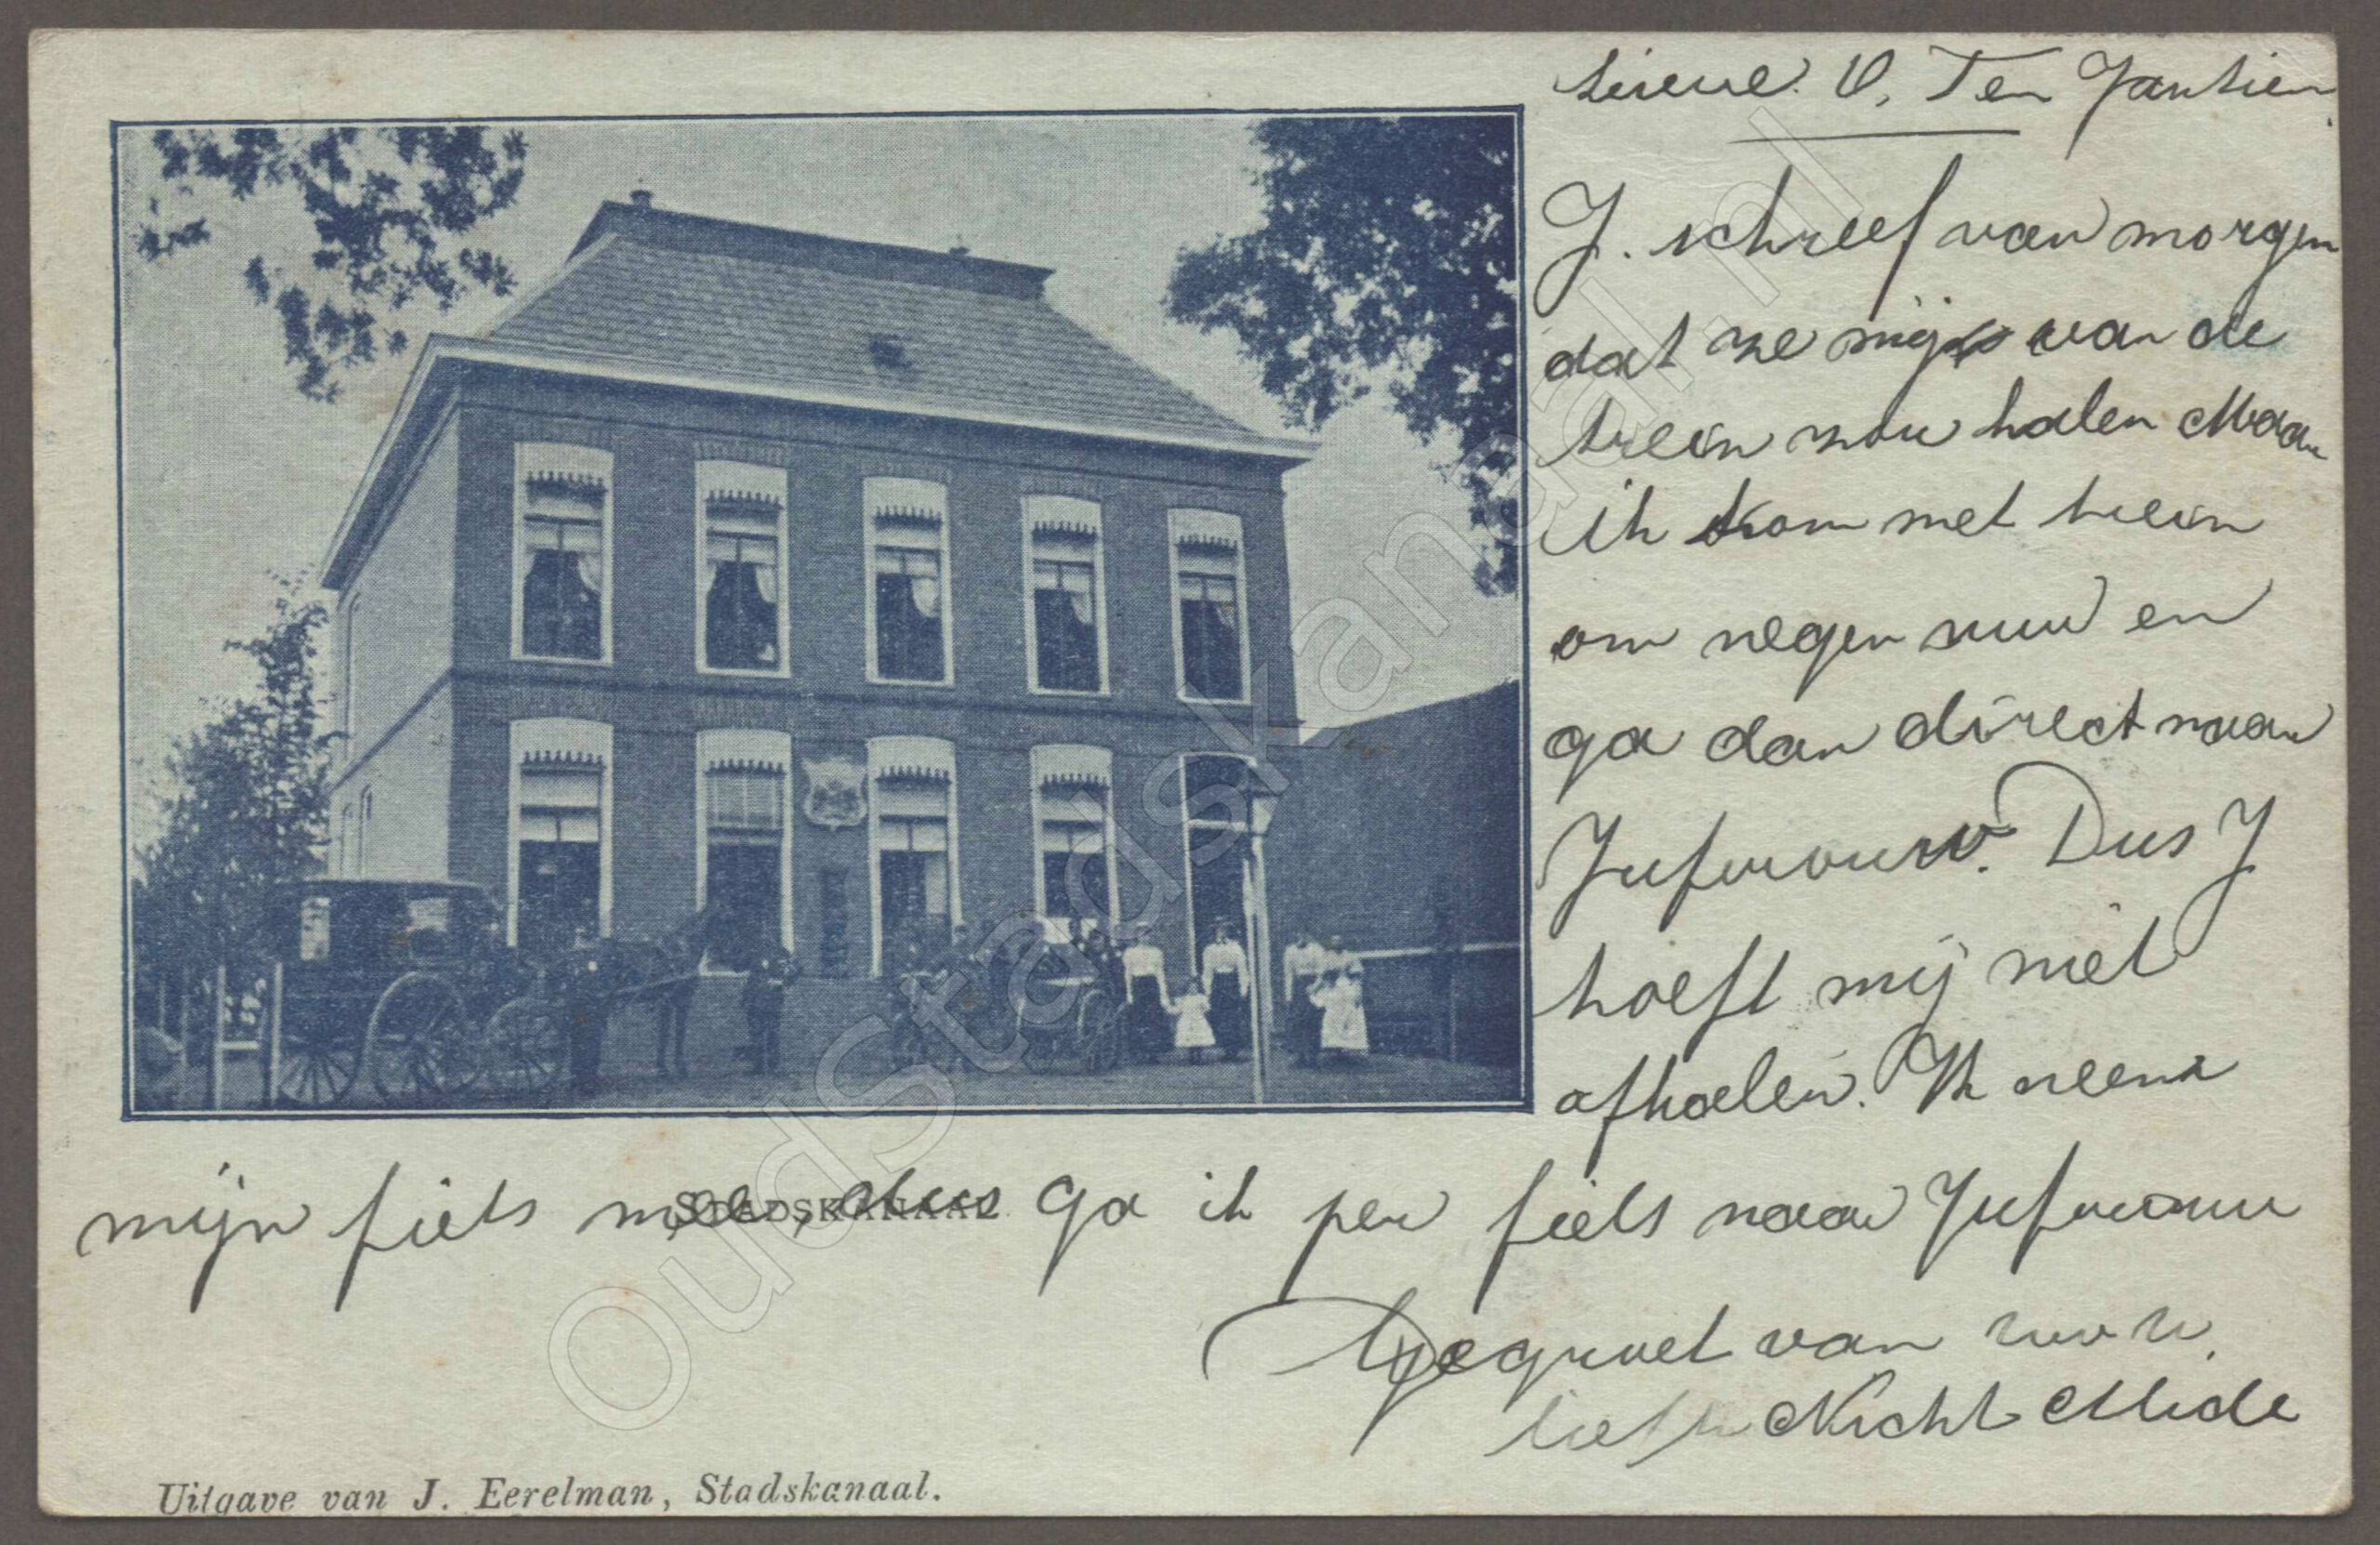 Lieve O. Ten Jantien
J. schreef van morgen
dat ze mij van de
trein zou halen Maar
ik kom met trein
om negen uur en
ga dan direct naar
Jufvrouw. Dus J
hoeft mij niet
afhalen. Ik neem
mijn fiets mee, dus ga ik per fiets naar Jufvrouw
STADSKANAAL
Gegroet van uw u.
liefh Nicht Mide
Uitgave van J. Eerelman, Stadskanaal.
OudStadskanaal.nl